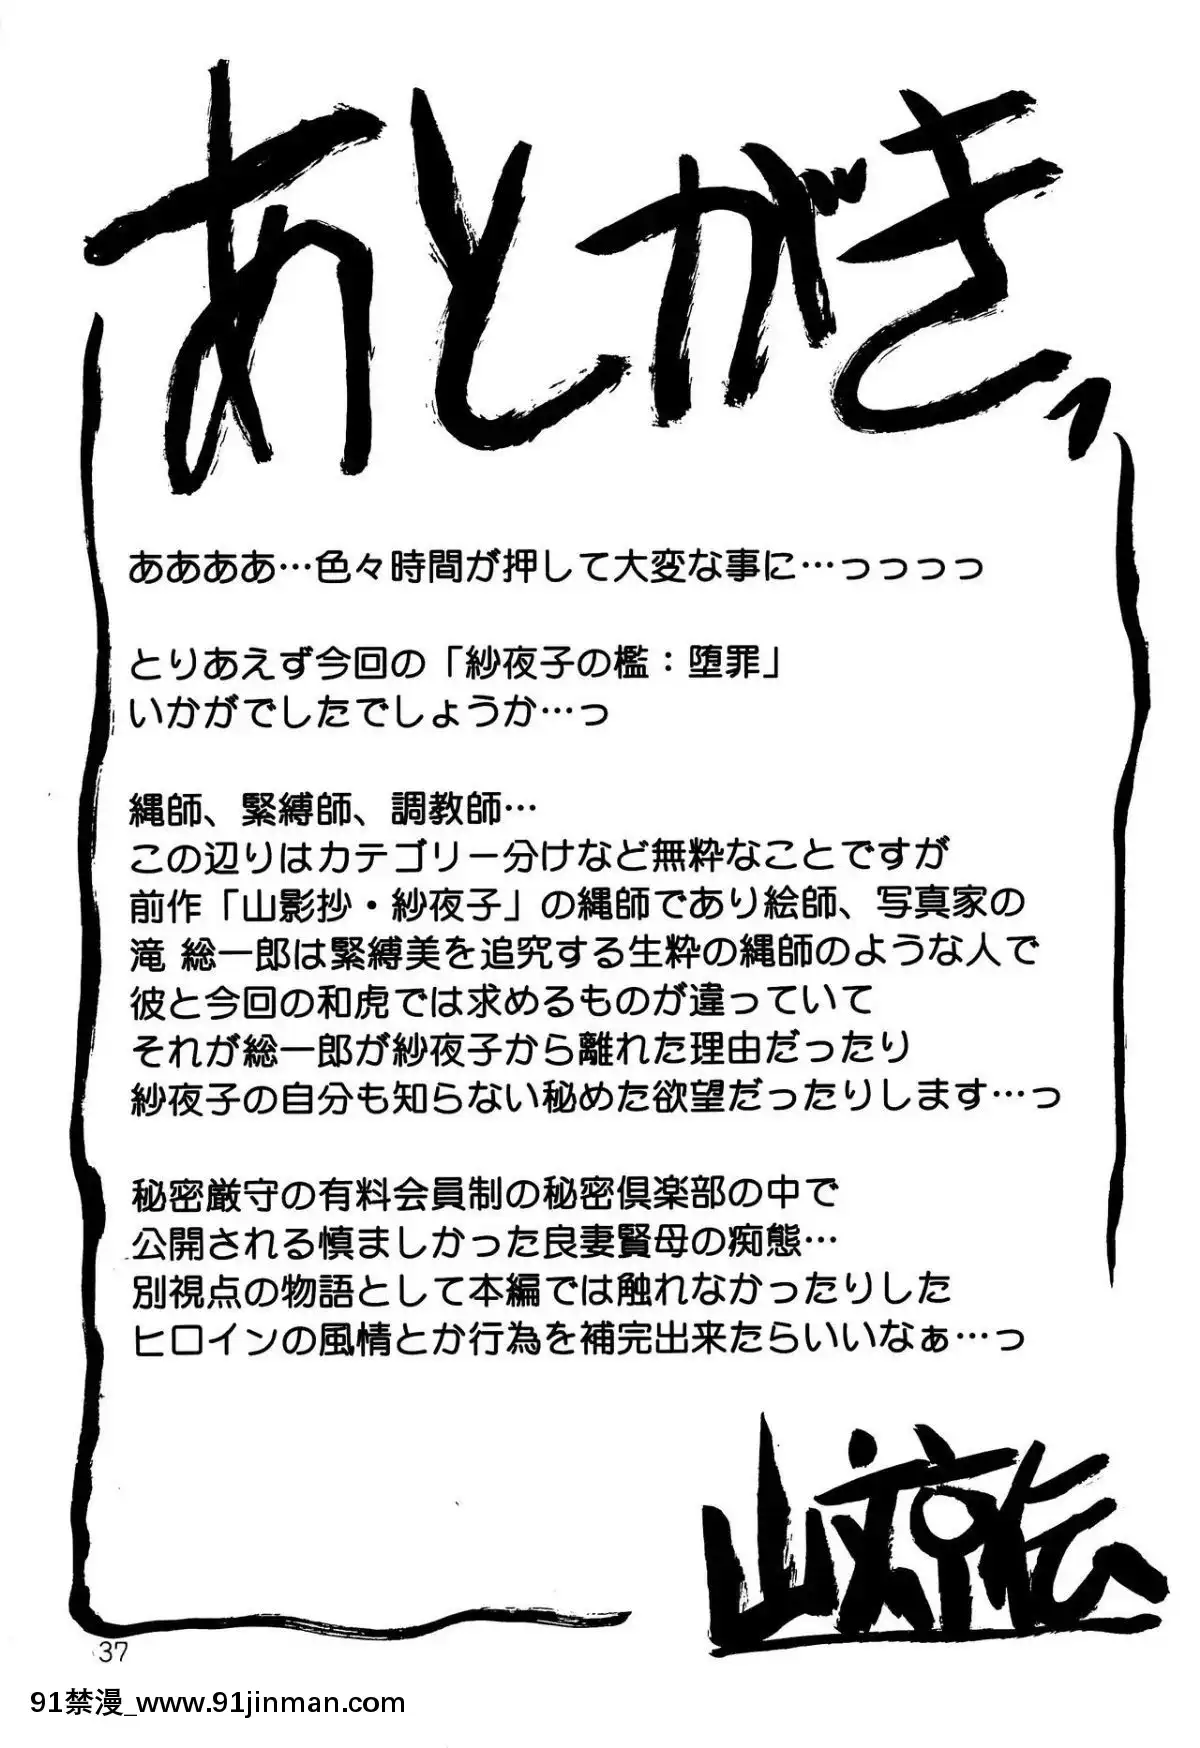 あとがき、
ああああ…色々時間が押して大変な事に…っっっっ
とりあえず今回の「紗夜子の檻：堕罪」
いかがでしたでしょうか…っ
縄師、緊縛師、調教師…
この辺りはカテゴリー分けなど無粋なことですが
前作「山影抄・紗夜子」の縄師であり絵師、写真家の
滝 総一郎は緊縛美を追究する生粋の縄師のような人で
彼と今回の和虎では求めるものが違っていて
それが総一郎が紗夜子から離れた理由だったり
紗夜子の自分も知らない秘めた欲望だったりします…っ
秘密厳守の有料会員制の秘密倶楽部の中で
公開される慎ましかった良妻賢母の痴態…
別視点の物語として本編では触れなかったりした
ヒロインの風情とか行為を補完出来たらいいなぁ…っ
山文京伝
37
91禁漫_www.91jinman.com